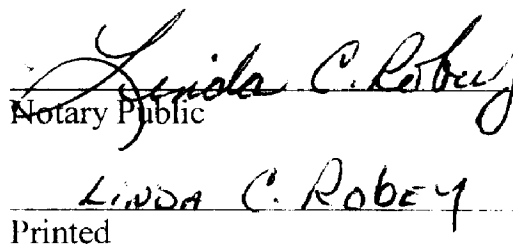 Linda C. Robey
Notary Public
LINDA C. ROBEY
Printed